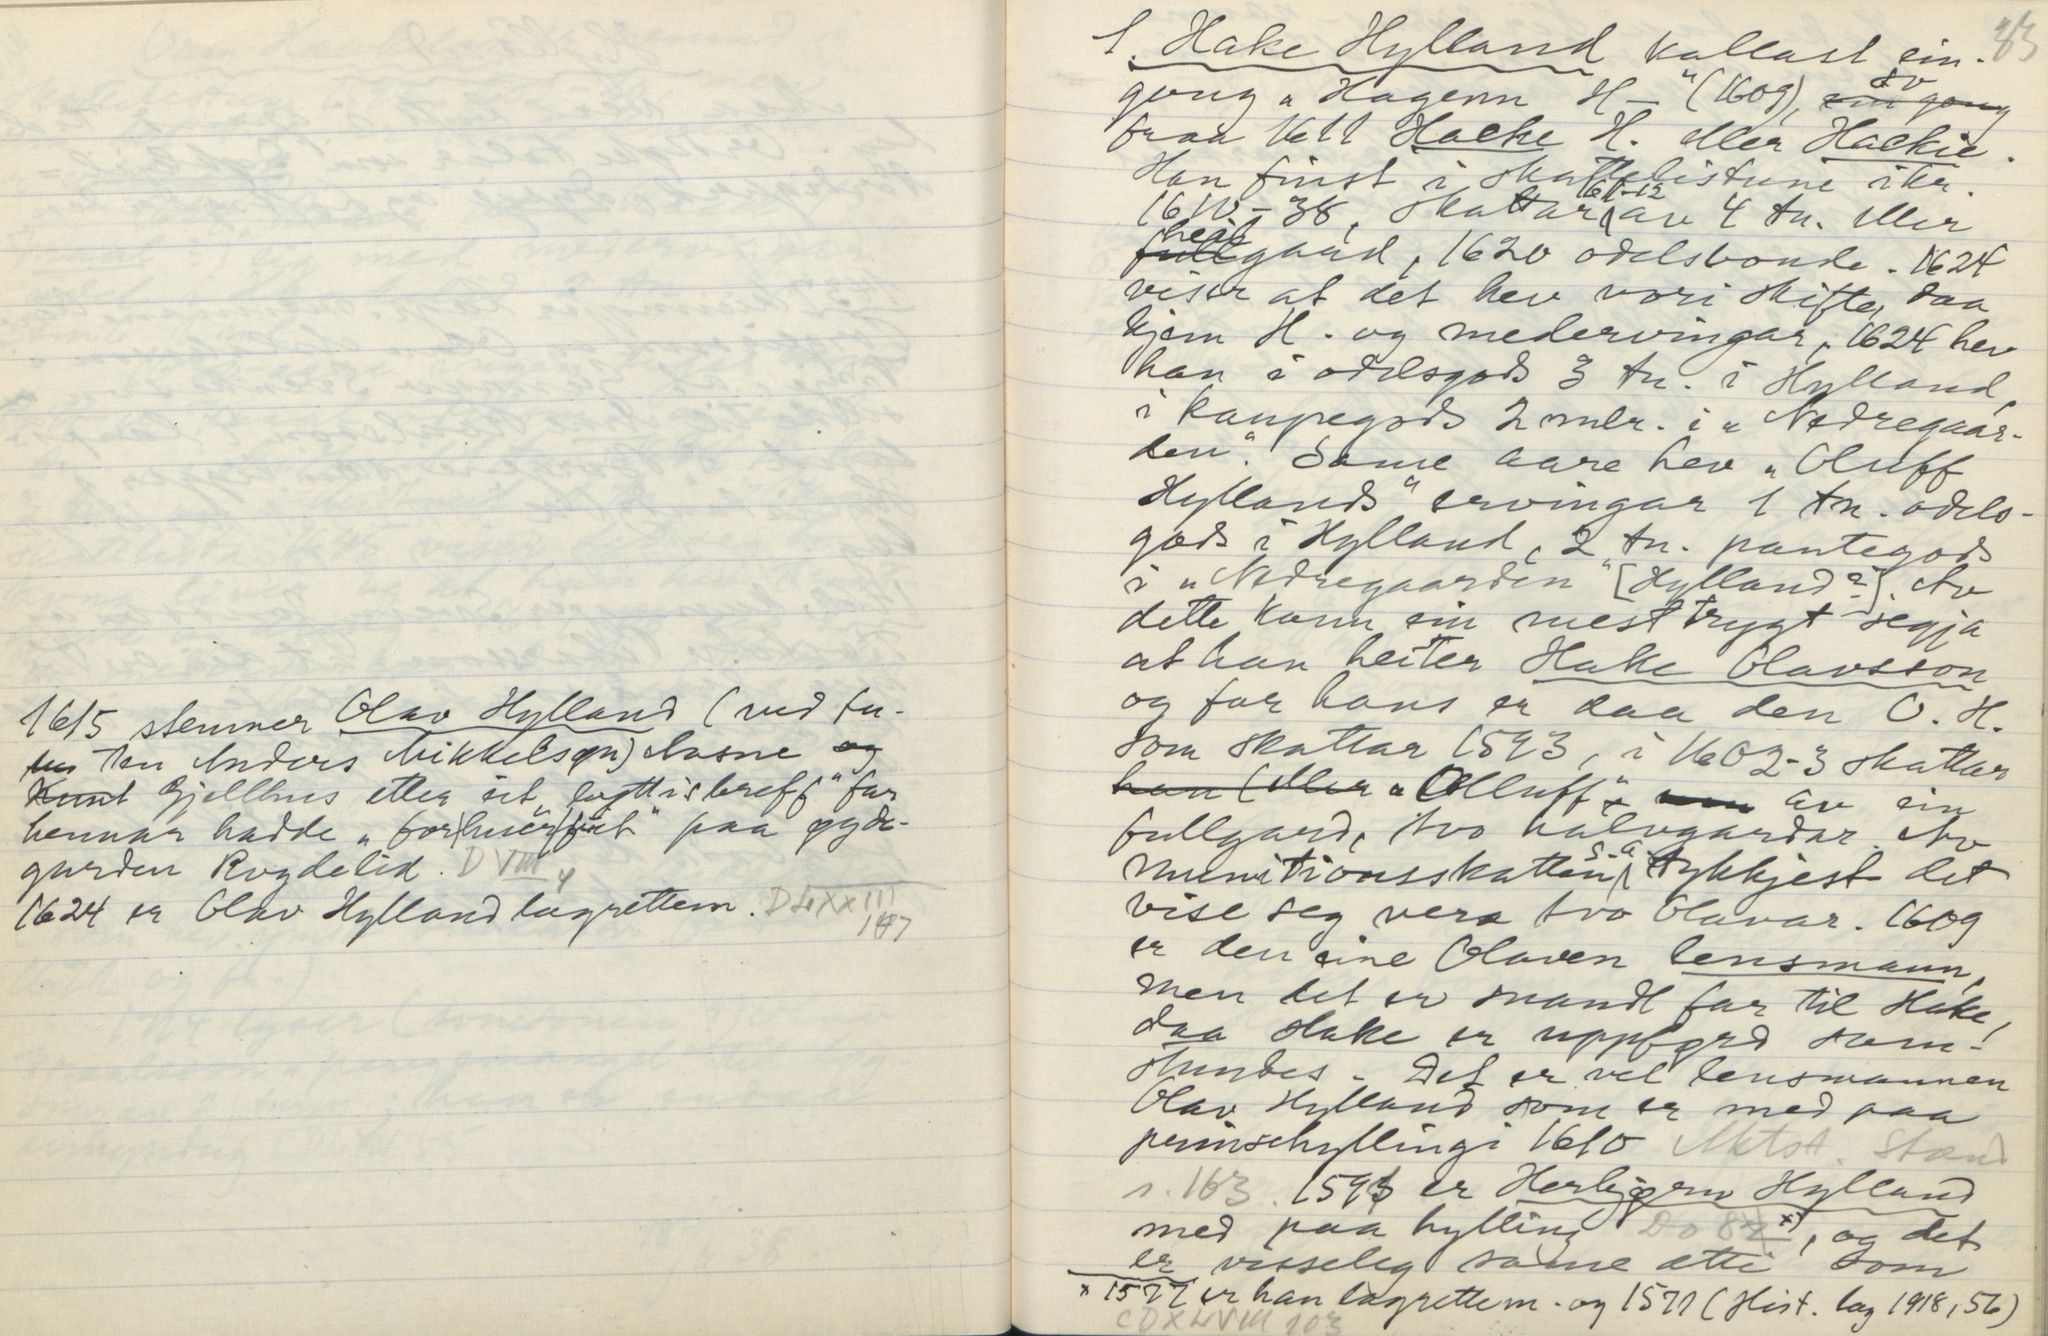 1615 stemner Olav Hylland (ved fu-
ten Anders Mikkelson) Aasne og
Knut Gjellhus etter eit „lofftisbreff“ far
hennar hadde „forhuerfuet“ paa øyde-
garden Rugdelid. D VIII 4
1624 er Olav Hylland lagrettem. D LXXIII
147
83
1. Hake Hylland kallast ein-
gong „Hagenn H—“ (1609), ein gong so
fraa 1611 Hacke H. eller Hackie.
Han finst i skattelistune ikr.
1610-38, skattar 1611-12 av 4 tn. eller
full heilgaard, 1620 odelsbonde. 1624
viser at det hev vori skifte, daa
kjem H. og medervingar, 1624 hev
han i odelsgods 3 tn. i Hylland,
i kaupegods 2 mlr. i „Nedregaar-
den“. Same aare hev „Oluff
Hyllands“ ervingar 1 tn. odels-
gods i Hylland, 2 tn. pantegods
i „Nedregaarden“ [Hylland?]. Av
dette kann ein mest trygt segja
at han heiter Hake Olavsson
og far hans er daa den O. H.
som skattar 1593, i 1602-3 skattar
han (eller „Olluff“ av ein
fullgard, tvo halvgardar. Av
munitionsskatten s. a. tykkjest det
vise seg vera tvo Olavar. 1609
er den eine Olaven lensmann,
men det er snandt far til Hake,
daa Hake er uppførd som-
stundes. Det er vel lensmannen
Olav Hylland som er med paa
prinsehyllingi 1610 Aktst. Stænd
s. 163. 1591 er Herbjørn Hylland
med paa hylling Do 82 x), og det
er visseleg same ætti som
x 1577 er han lagrettem. og 1571 (Hist. lag 1918, 56)
CDXLVIII 103